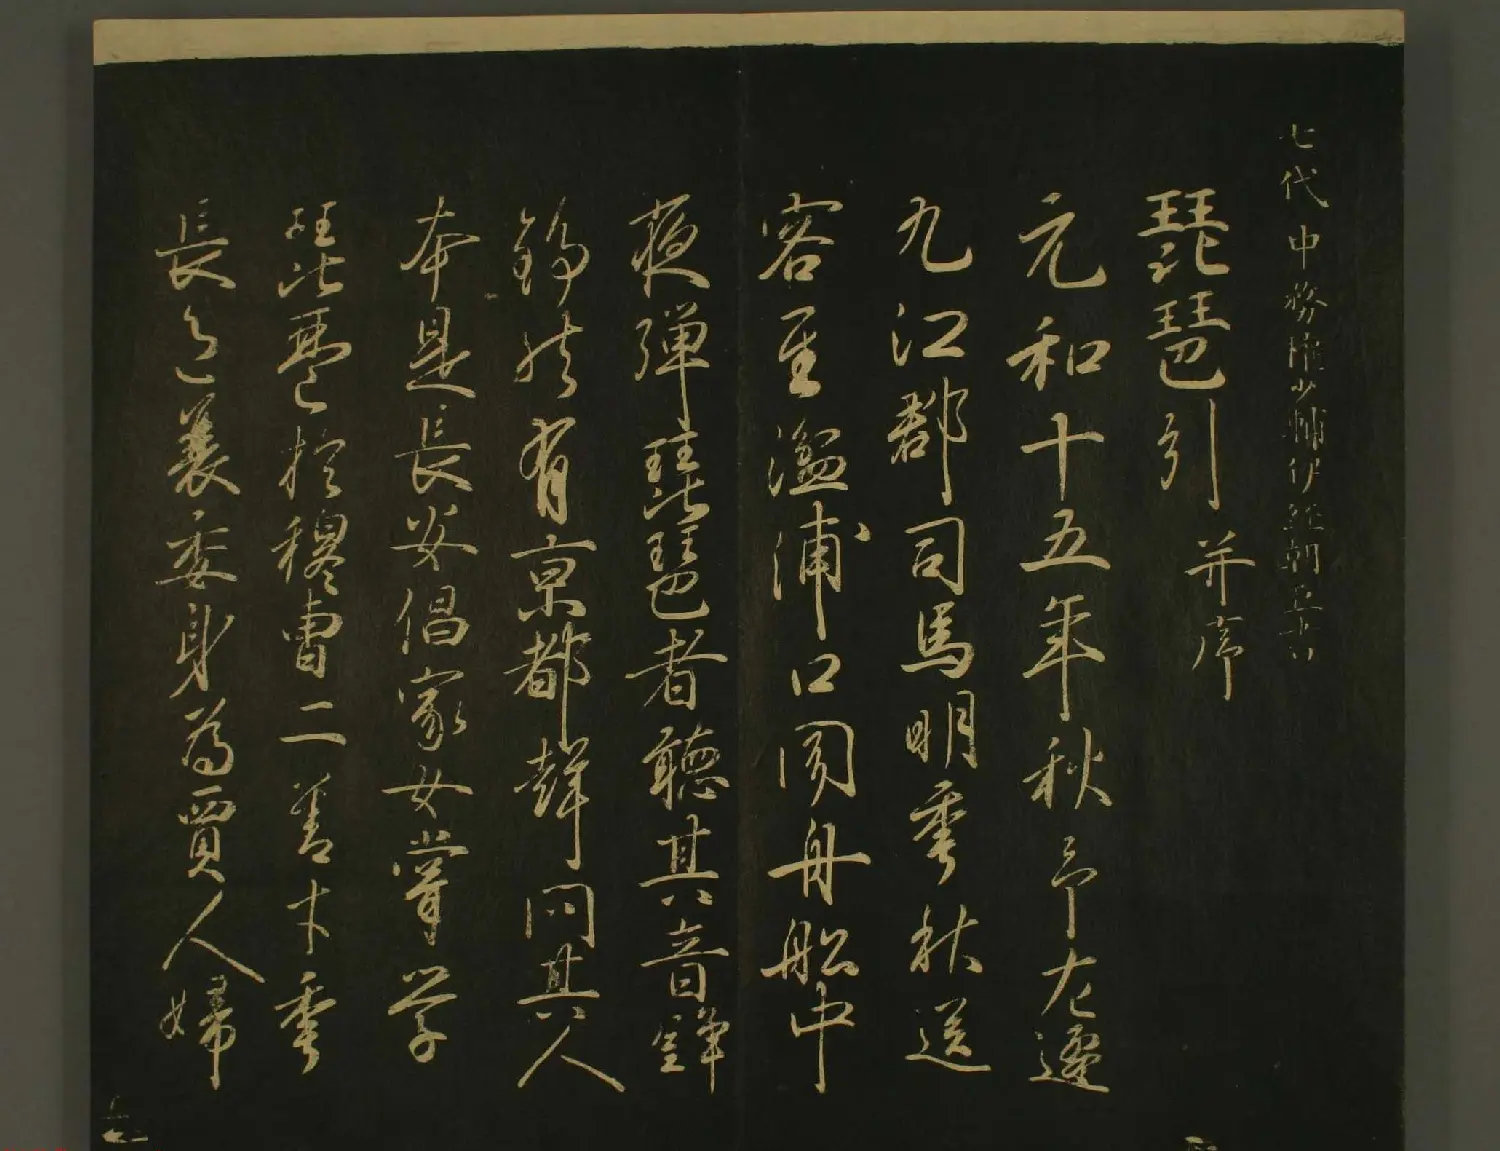 七代中務權少輔伊經朝臣書
琵琶引 并序
元和十五年秋予左遷
九江郡司馬明秊秋送
客至湓浦口聞舟舩中
夜彈琵琶者聽其音錚
錚然有京都聲問其人
本是長安倡家女嘗學
琵琶於穆曹二善才秊
長色衰委身為賈人婦